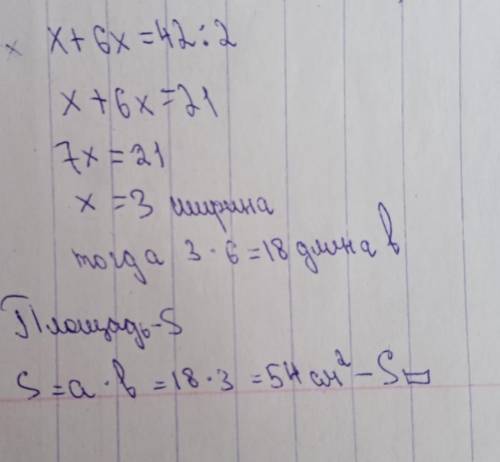 x + 6x = 42 : 2
x + 6x = 21
7x = 21
x = 3 ширина
тогда 3 · 6 = 18 длина в
Площадь - S
S = a · в = 18 · 3 = 54 см² - S▭